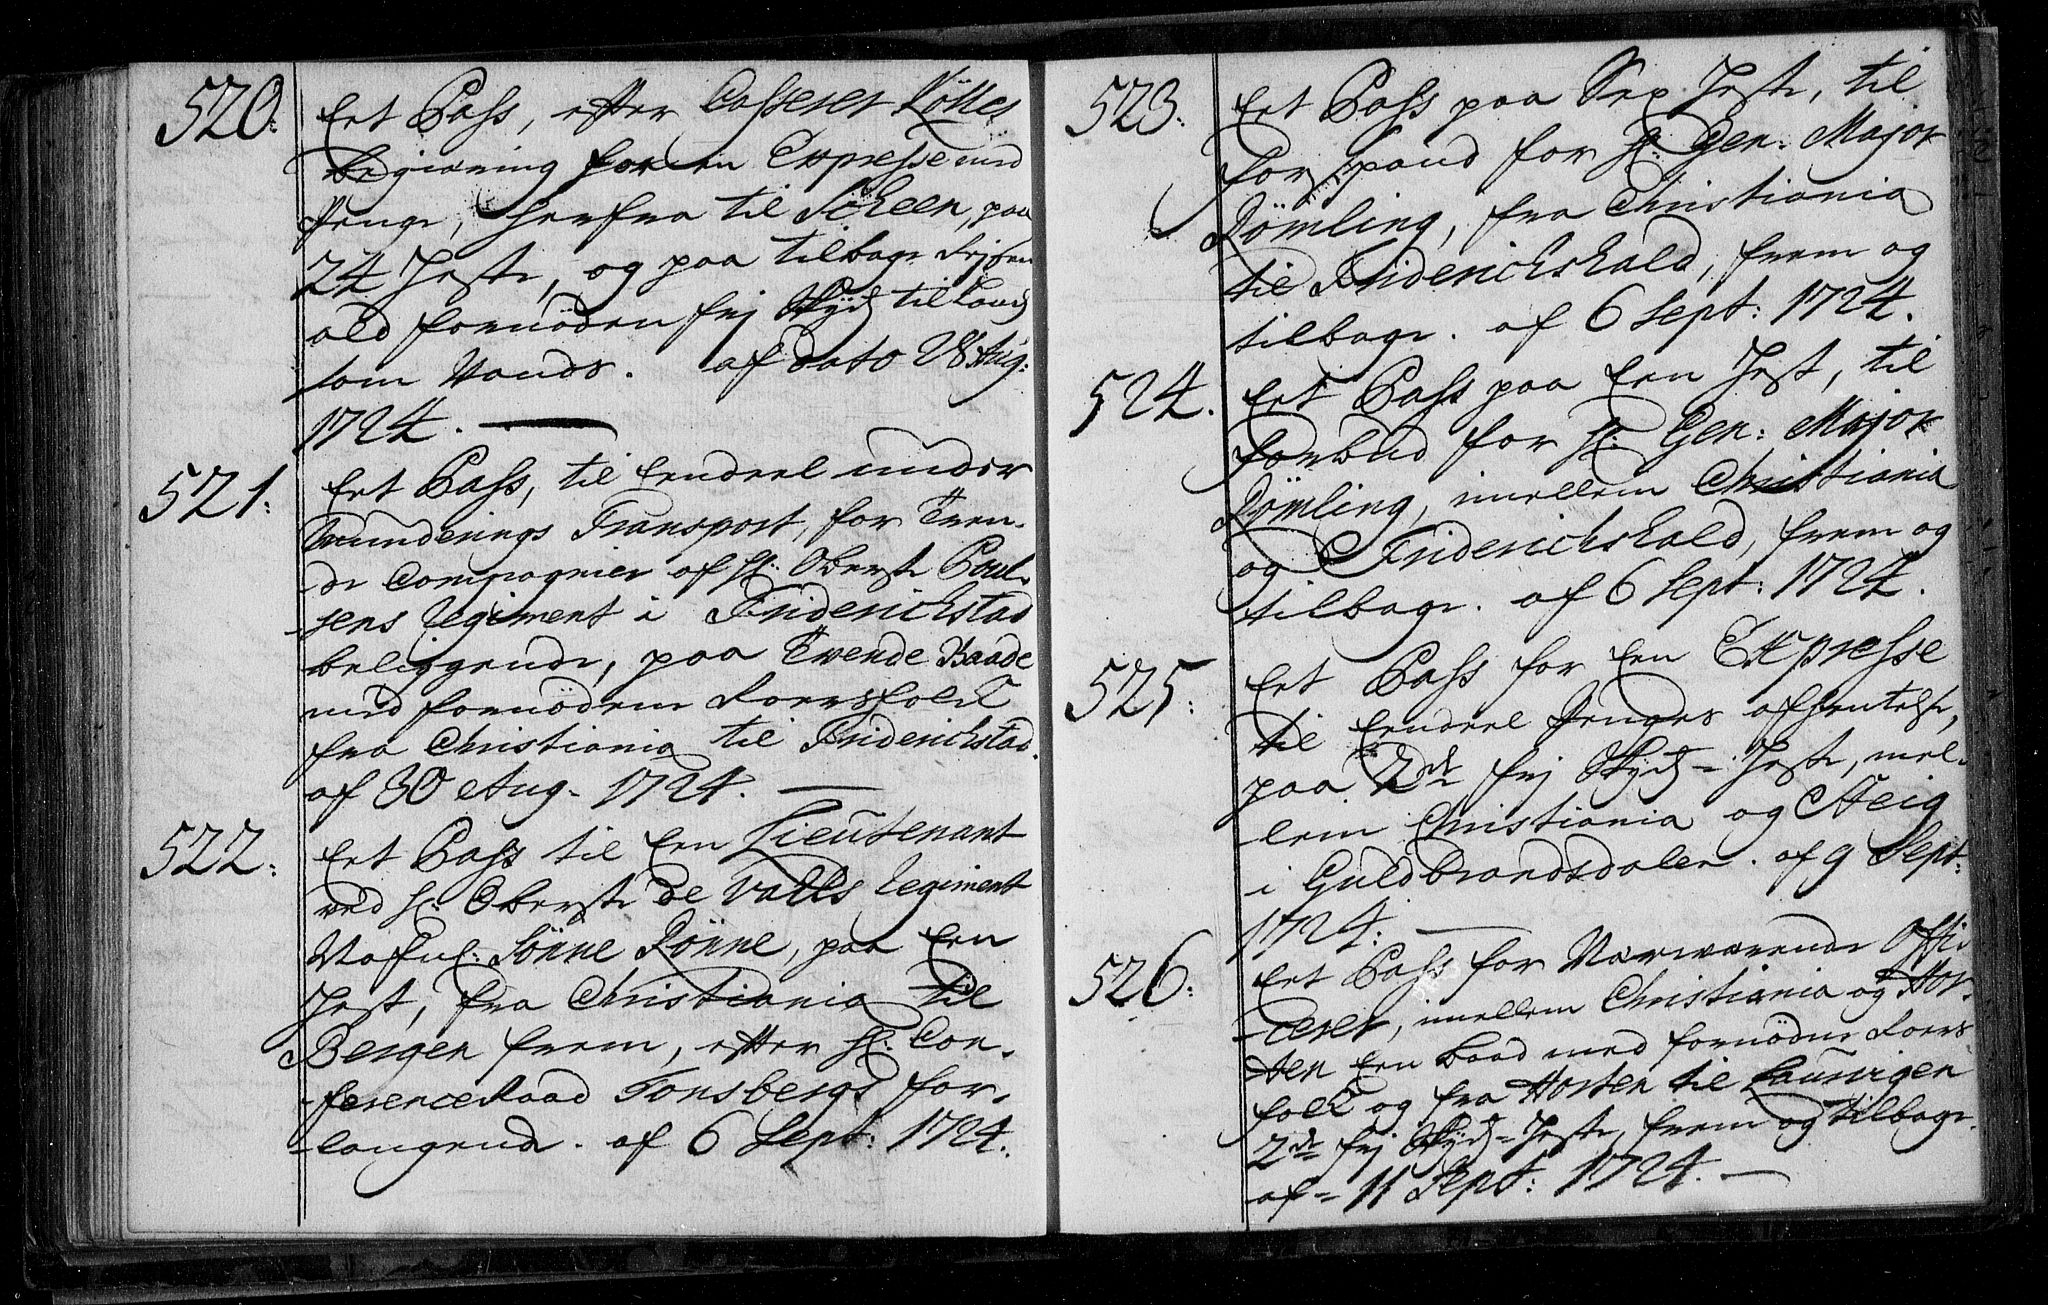 520: Eet Pass, efter Casserer Røttes
begiæring for en Expresse med
Penge, herfra til Scheen, paa
24 Heste, og paa tilbage Rejsen
ald fornøden frj Skyds til Lands
som Vands. af dato 28 Aug:
1724.
521: Eet Pass, til Eendeel under
Munderings Transport, for Tven-
de Compagnier af Hr: Oberste Poul-
sens Regiment i Friderichstad
beliggende, paa Tvende Baade
med fornöden Roersfolck
fra Christiania til Friderichstad.
af 30 Aug. 1724.
522: Eet Pass til Een Lieutenant
ved Hr: Oberste de Valls Regiment
Nafnl: Sönne Rönne, paa Een
Hest, fra Christiania til
Bergen frem, efter Hr: Con-
ferenceRaad Tonsbergs for-
langende. af 6 Sept: 1724.
523: Eet Pass paa Sex Heste, til
forspand for Hr: Gen: Major
Römling, fra Christiania
til Friderichshald, frem og
tilbage. af 6 Sept: 1724.
524. Eet Pass paa Een Hest, til
forbud for Hr: Gen: Major
Römling, imellem Christiania
og Friderichshald, frem og
tilbage. af 6 Sept: 1724.
525: Eet Pass for Een Expresse
til Eendeel Penges afhentelse,
paa 2de frj Skyds-Heste, mel-
lem Christiania og Steig
i Guldbrandsdalen. af 9 Sept:
1724.
526: Eet Pass for Nærværende Offi-
cerer, imellem Christiania og Hor-
ten Een Baad med fornödne Roers
folck og fra Horten til Laurvigen
2de frj Skyds-Heste, frem og tilbage.
af 11 Sept: 1724.